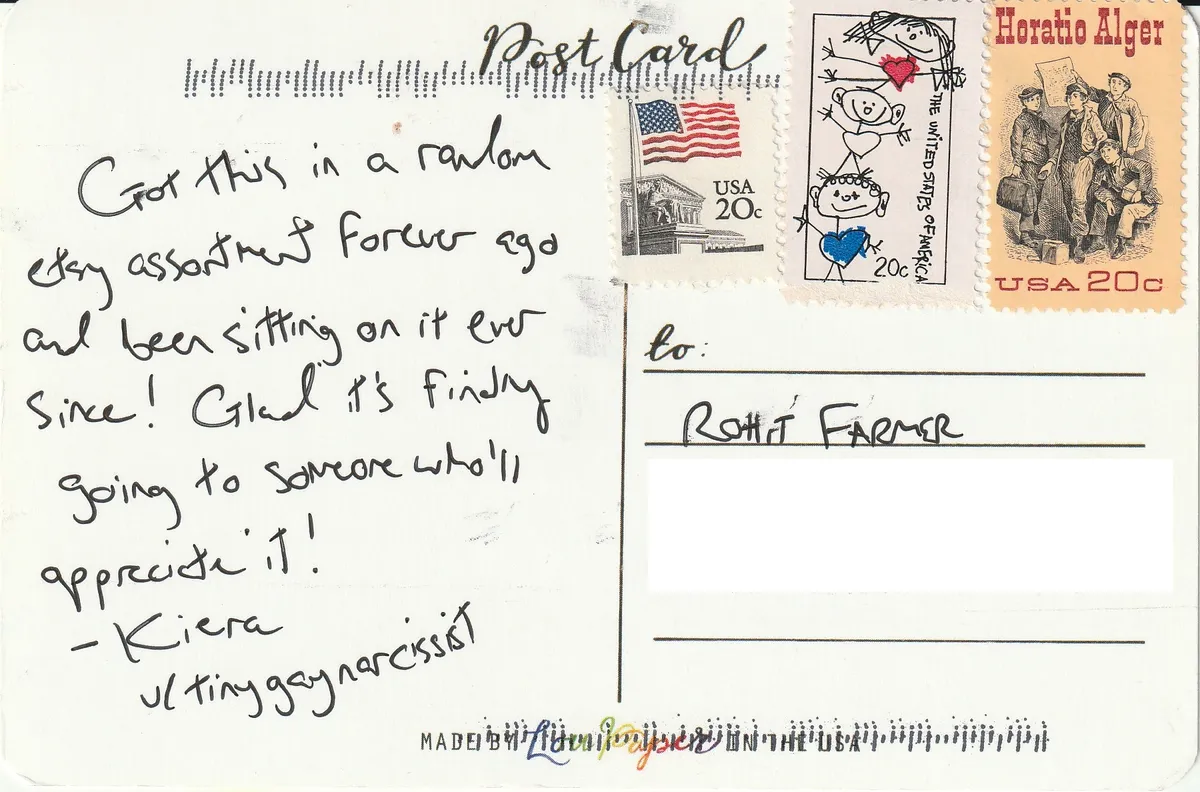 Post Card
Got this in a random
etsy assortment forever ago
and been sitting on it ever
since! Glad it's finally
going to someone who'll
appreciate it!
- Kiera
u/tinygaynarcissist
USA
20c
THE UNITED STATES OF AMERICA
20c
Horatio Alger
USA 20c
to:
ROHIT FARMER
MADE BY Love Paper IN THE USA